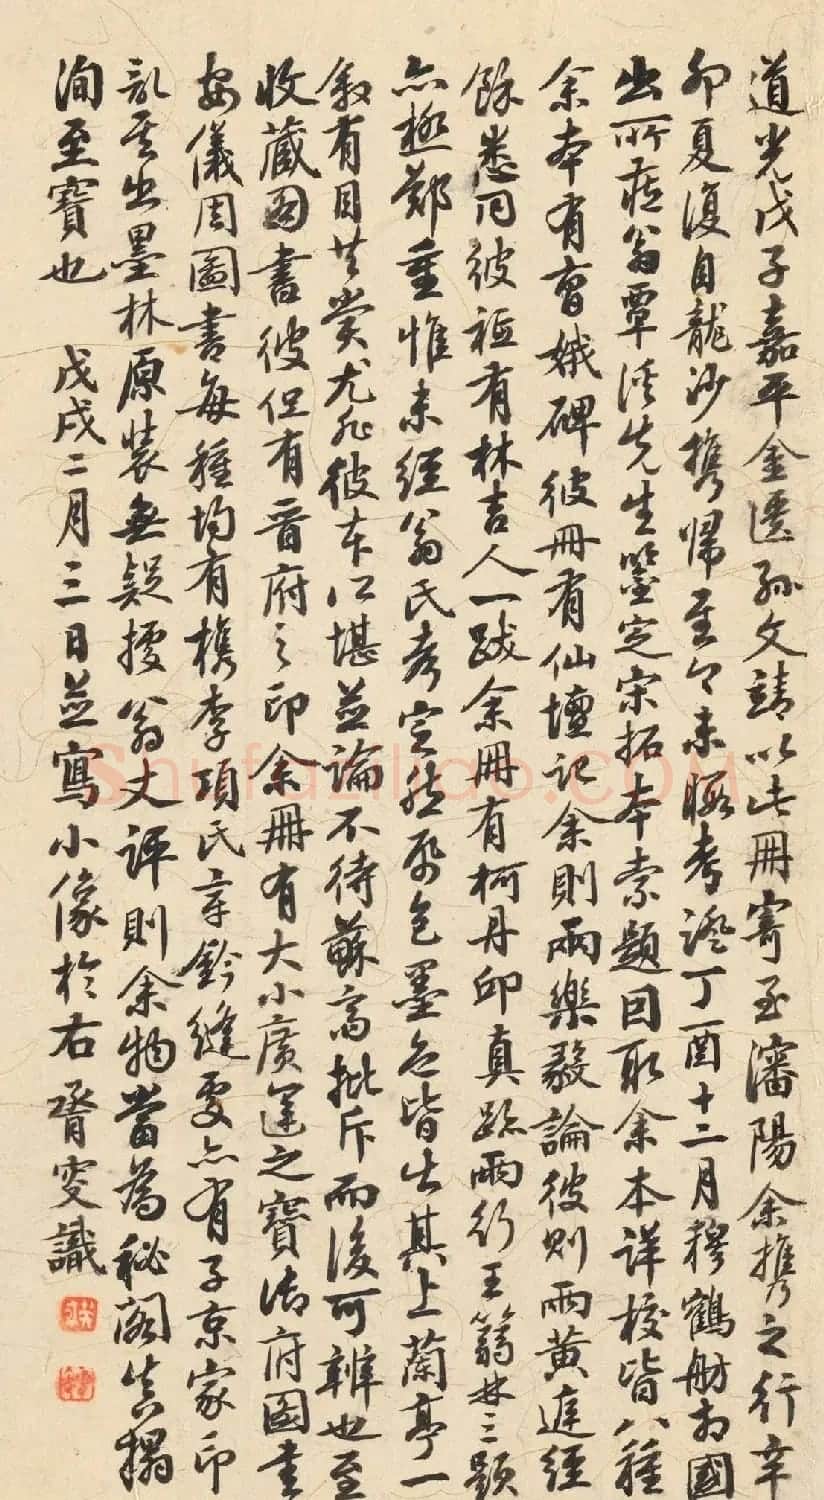 道光戊子嘉平金匱孫文靖以此冊寄至瀋陽余攜之行辛
卯夏復自龍沙攜歸至今未暇考證丁酉十二月穆鶴舫相國
出所茷翁覃溪先生鑒定宋拓本索題因取余本詳校皆八種
余本有曹娥碑彼冊有仙壇記余則兩樂毅論彼則兩黃庭經
餘悉同彼祗有林吉人一跋余冊有柯丹邱真跡兩行王蒻林三題
亦極鄭重惟未經翁氏考定然紙色墨色皆出其上蘭亭一
敘有目共賞尤非彼本所堪並論不待蘇高批斥而後可辨也至
收藏圖書彼但有晉府之印余冊有大小廣運之寶御府圖書
安儀周圖書每種均有檇李項氏章鈐縫處亦有子京家印
記其出墨林原裝無疑據翁丈評則余物當為秘閣真搨
洵至寶也 戊戌二月三日並寫小像於右 膺叟識
Shufaziliao.COM